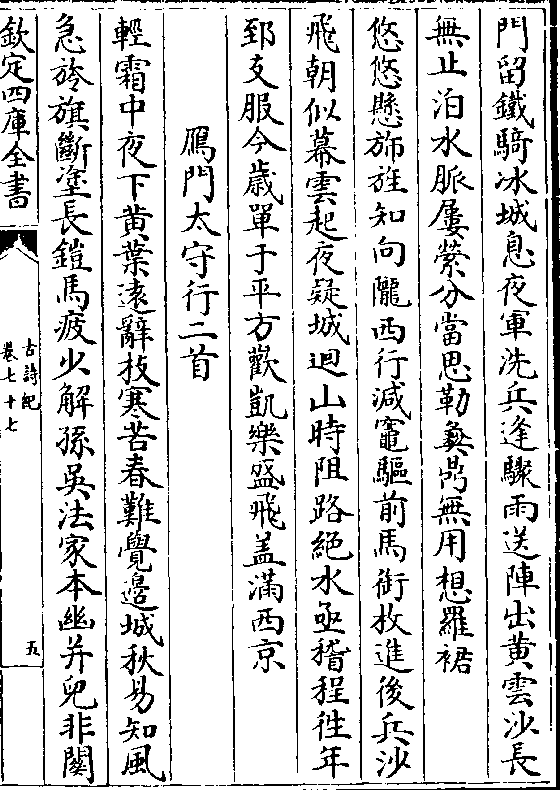 門留鐵騎冰城息夜軍洗兵逢驟雨送陣出黃雲沙長
無止泊水脈屢縈分當思勒彝鼎無用想羅裙
悠悠懸斾旌知向隴西行減竈驅前馬銜枚進後兵沙
飛朝似幕雲起夜疑城迴山時阻路絶水亟稽程往年
郅支服今歳單于平方歡凱樂盛飛盖滿西京
鴈門太守行二首
輕霜中夜下黄葉逺辭枝寒苦春難覺邉城秋易知風
急旍旗斷塗長鎧馬疲少解孫吳法家本幽并兒非關
欽定四庫全書
古詩紀
卷七十七
五